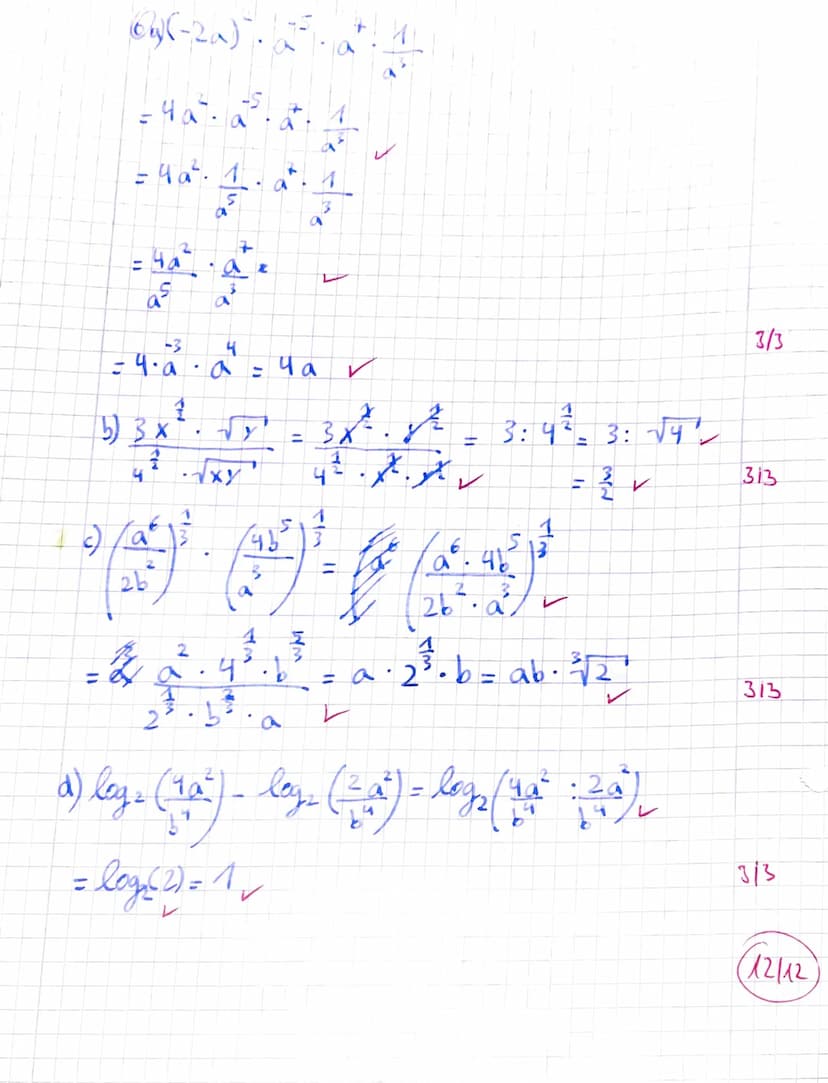 6a) (-2a)² · a⁻⁵ · a⁷ · 1/a³
= 4a² · a⁻⁵ · a⁷ · 1/a³ ✓
= 4a² · 1/a⁵ · a⁷ · 1/a³
= 4a²/a⁵ · a⁷/a³ ✓
3/3
= 4 · a⁻³ · a⁴ = 4a ✓
b) (3x^(1/2) · √y)/(4^(1/2) · √(xy)) = (3x^(1/2) · y^(1/2))/(4^(1/2) · x^(1/2) · y^(1/2)) ✓ = 3 : 4^(1/2) = 3 : √4 ✓
= 3/2 ✓ 3/3
c) (a⁶/(2b²))^(1/3) · (4b⁵/a³)^(1/3) = ((a⁶ · 4b⁵)/(2b² · a³))^(1/3) ✓
= (a² · 4^(1/3) · b^(5/3))/(2^(1/3) · b^(2/3) · a) ✓ = a · 2^(1/3) · b = ab · ³√2 ✓ 3/3
d) log₂(4a²/b⁴) - log₂(2a²/b⁴) = log₂(4a²/b⁴ : 2a²/b⁴) ✓
= log₂(2) ✓ = 1 ✓ 3/3
12/12